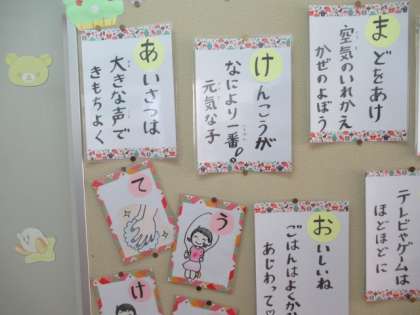 まどをあけ
空気のいれかえ
かぜのよぼう
けんこうが
なにより一番。
元気な子
あいさつは
大きな声で
きもちよく
テレビやゲームは
ほどほどに
おいしいね
ごはんはよくかみ
あじわって♡
う
て
け